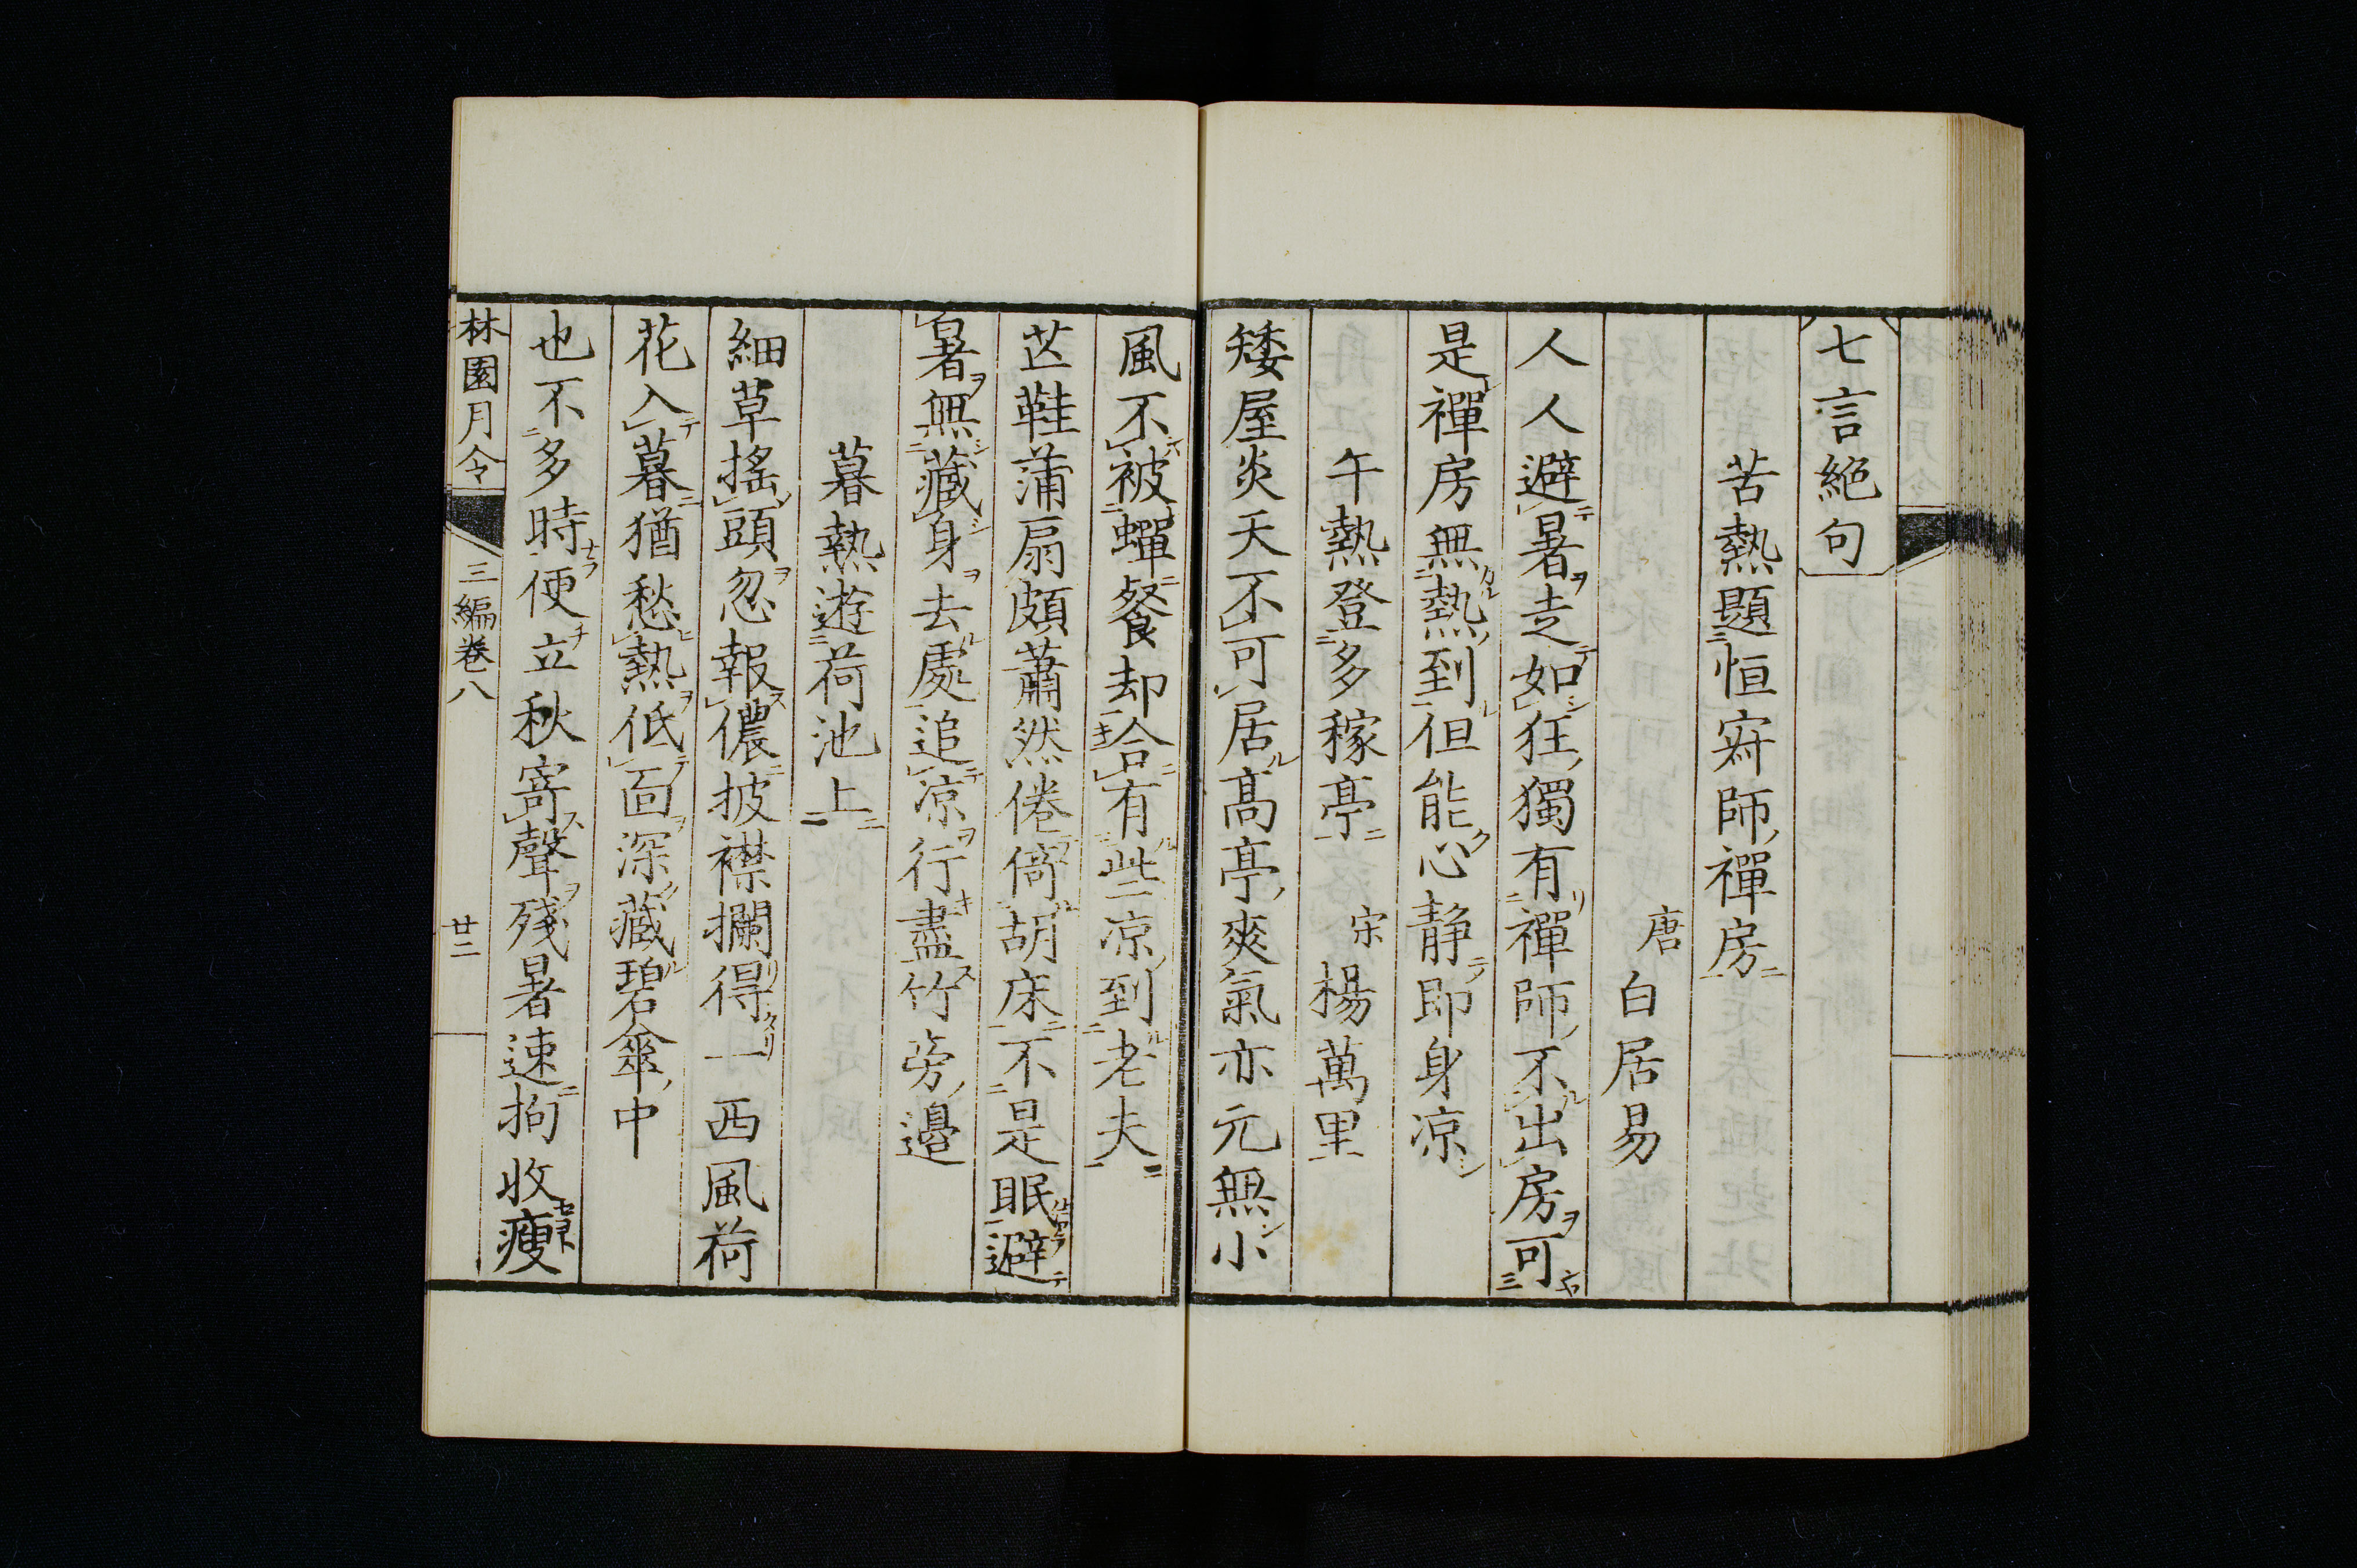 七言絶句
苦熱題恒寂師禪房
唐 白居易
人人避暑走如狂獨有禪師不出房可
是禪房無熱到但能心静即身凉
午熱登多稼亭 宋 楊萬里
矮屋炎天不可居髙亭爽氣亦元無小
風不被蟬餐却合有些凉到老夫
芒鞋蒲扇頗蕭然倦倚胡床不是眠避
暑無藏身去處追凉行盡竹旁邊
暮熱遊荷池上
細草搖頭忽報儂披襟攔得一西風荷
花入暮猶愁熱低面深藏碧傘中
也不多時便立秋寄聲殘暑速拘收瘦
林園月令 三編卷八 廿二